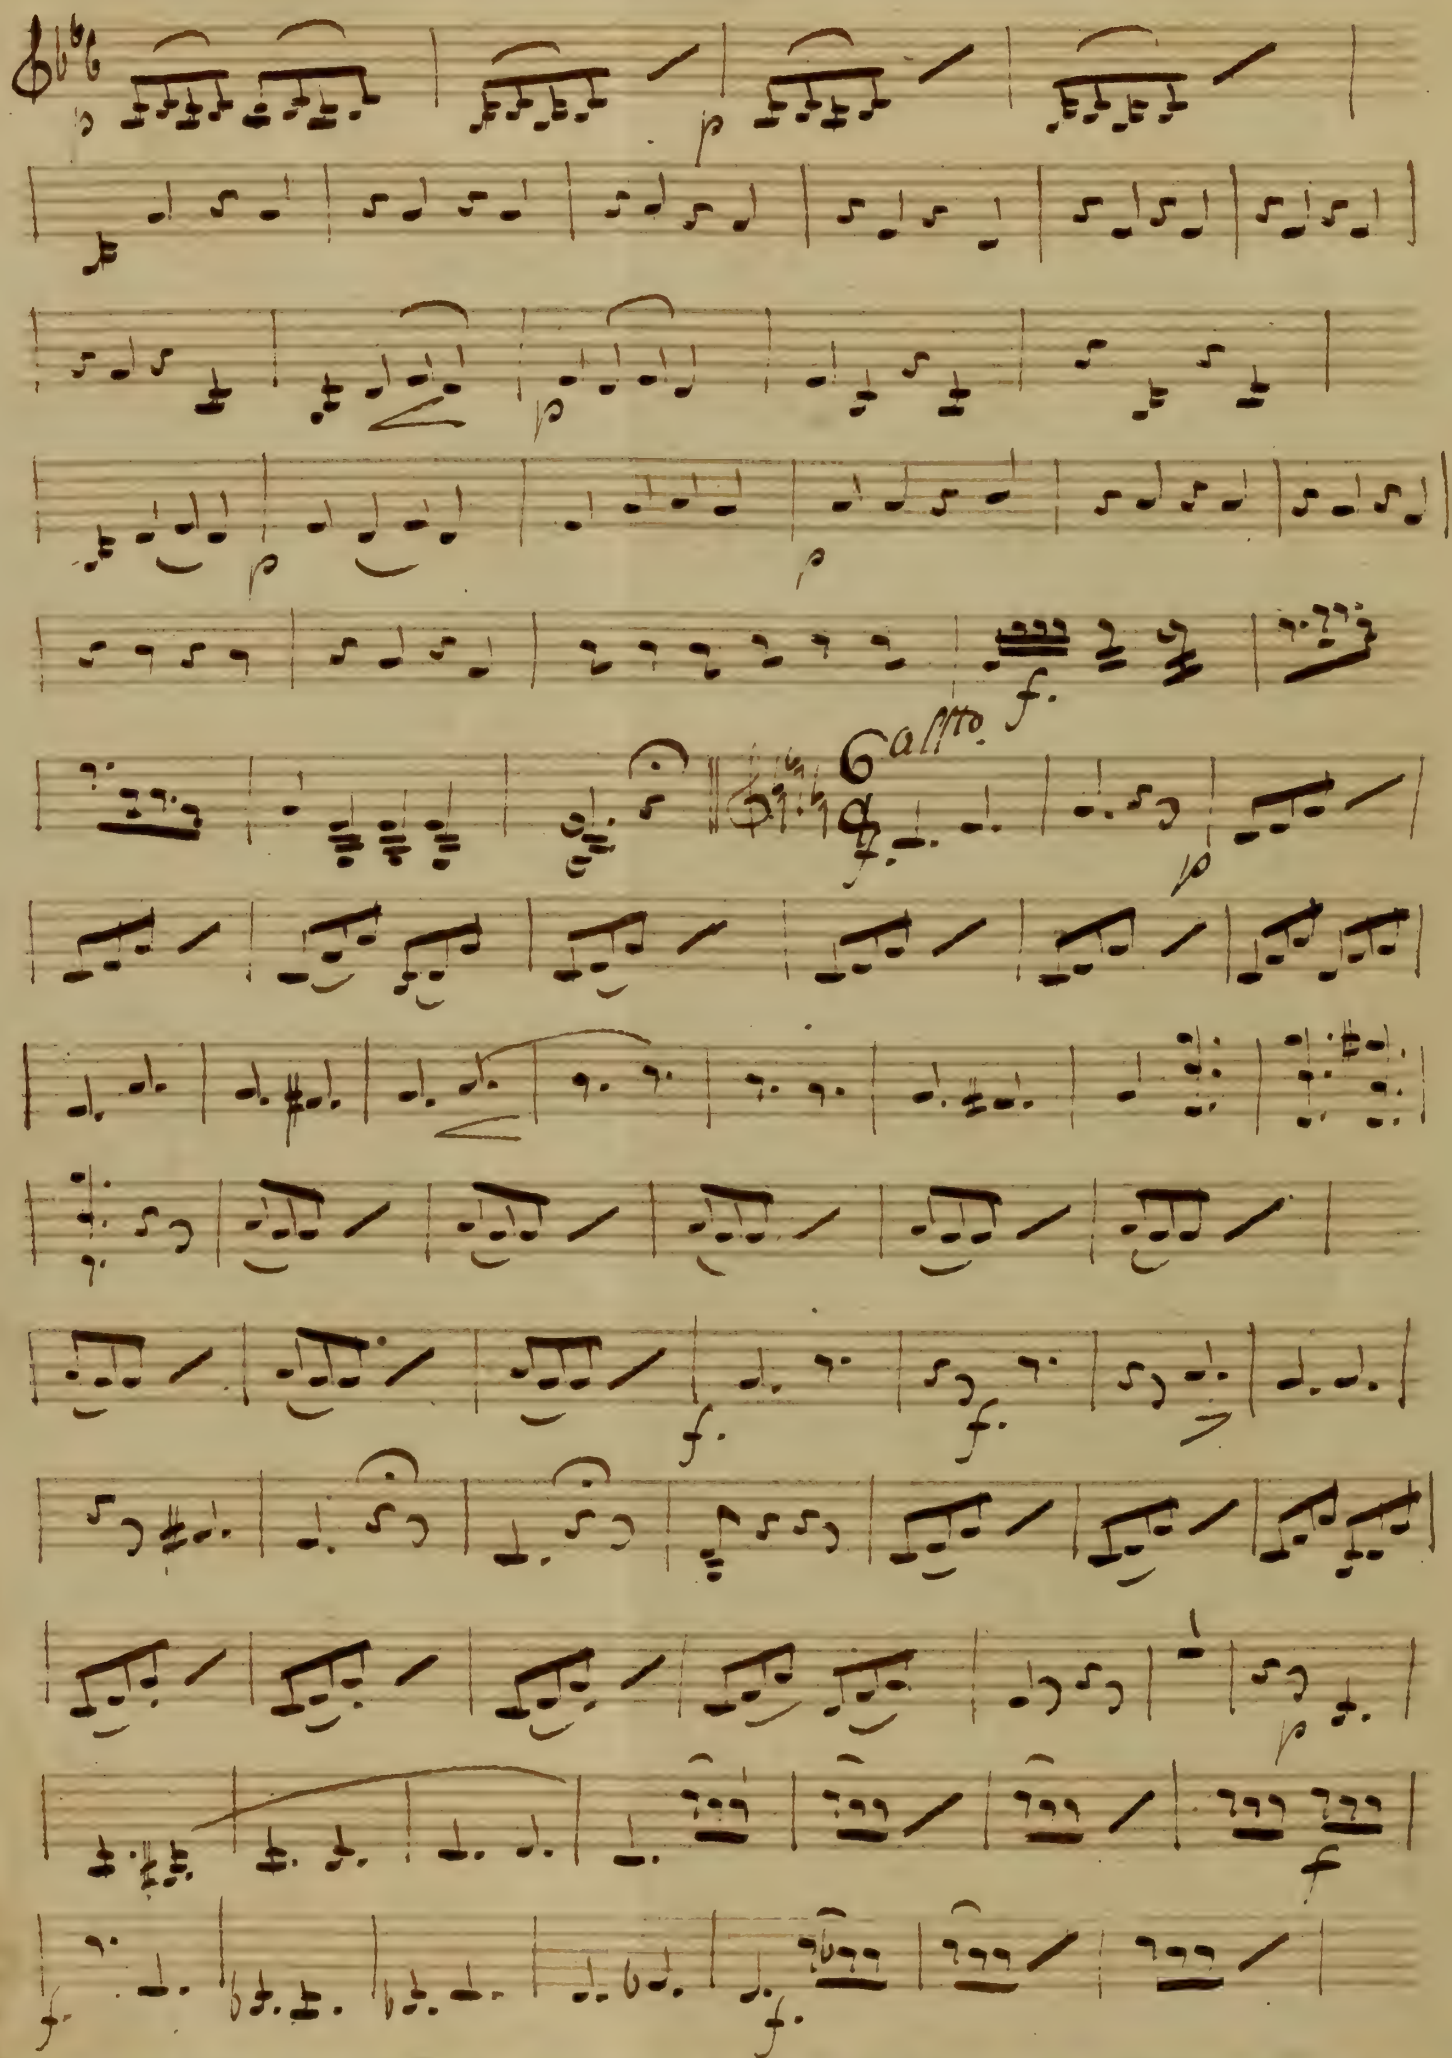 p p
p
p p
f.
6 allto.
8
f. p
f. f.
p
f
f. f.